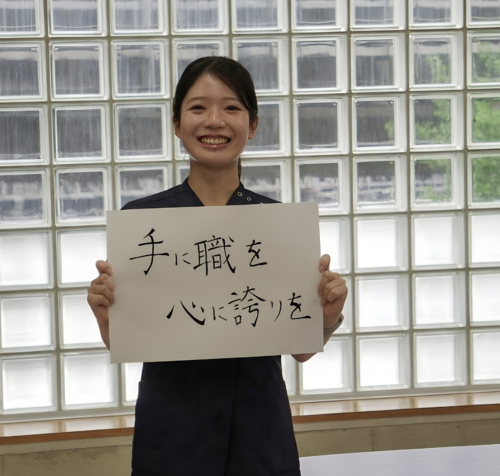 手に職を
心に誇りを